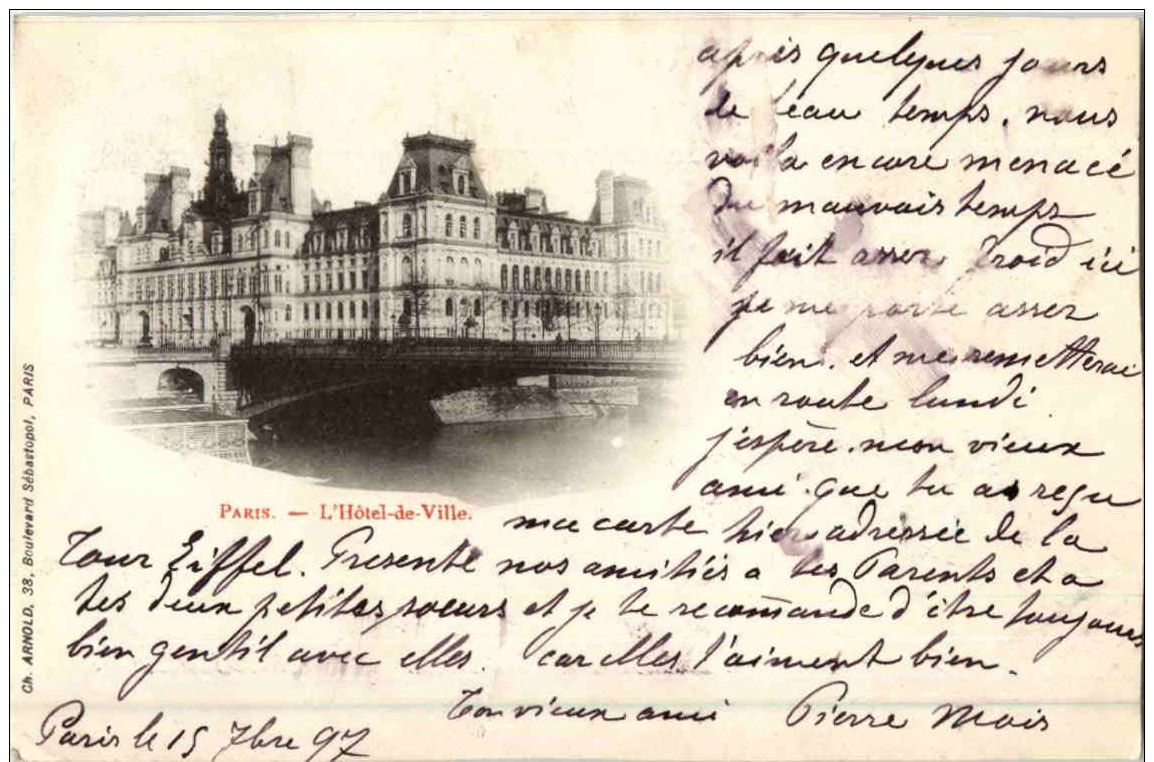 après quelques jours
de beau temps, nous
voila encore menacé
du mauvais temps
il fait assez froid ici
je me porte assez
bien. et me remetterai
en route lundi
j'espère. mon vieux
ami. que tu as reçu
PARIS. — L'Hôtel-de-Ville.
ma carte hier adressée de la
Tour Eiffel. Presente nos amitiés a tes Parents et a
tes deux petites soeurs et je te recommande d'être toujours
bien gentil avec elles. car elles t'aiment bien.
Ton vieux ami Pierre
Paris le 15 7bre 97
Ch. ARNOLD, 38, Boulevard Sébastopol, PARIS